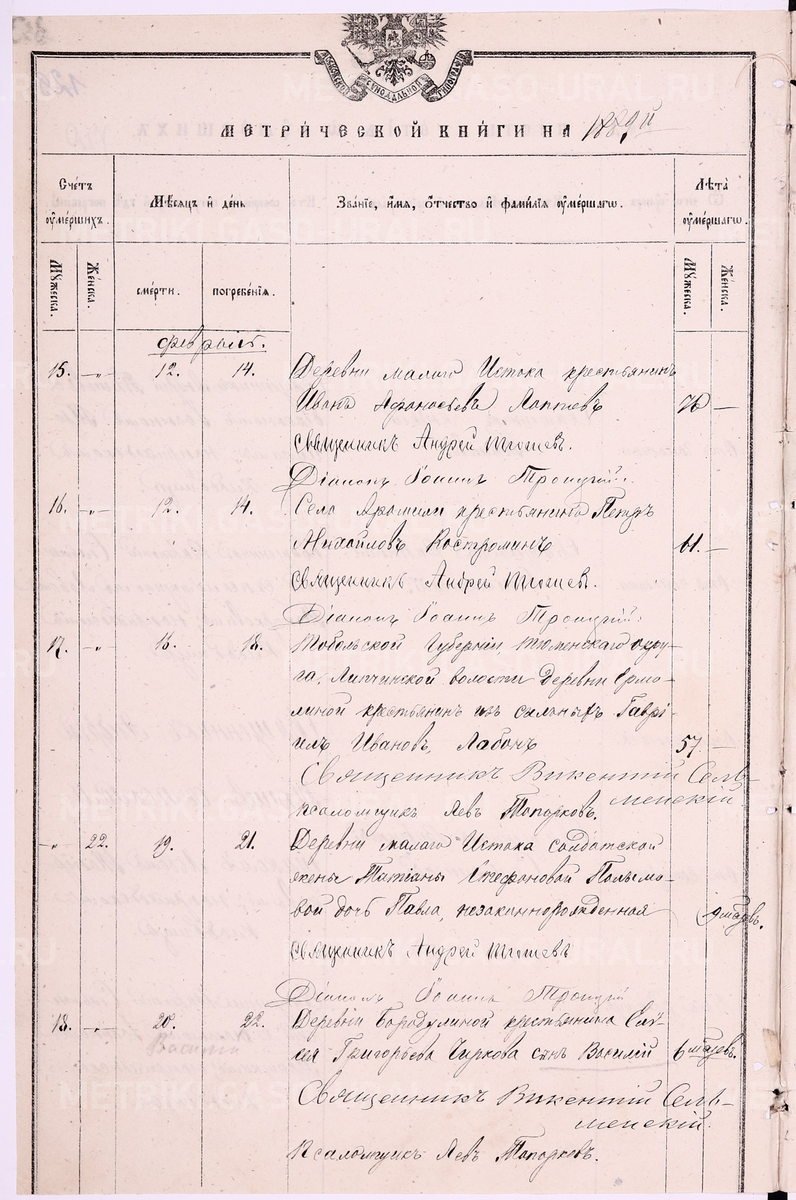 МОСКОВСКОЙ СѴНОДАЛЬНОЙ ТИПОГРАФІИ
МЕТРИ́ЧЕСКОЙ КНИ́ГИ НА 1889й
Сче́тъ оу҆ме́ршихъ.
Мѣ́сяцъ и҆ де́нь
Зва́нїе, и҆́мя, ѻ҆́тчество и҆ фами́лїя оу҆ме́ршагѡ.
Лѣ́та оу҆ме́ршагѡ.
Мꙋ́жеска.
Же́нска.
сме́рти.
погребе́нїя.
Мꙋ́жеска.
Же́нска.
февраль.
15. -„- 12. 14. Деревни малаго Истока крестьянинъ
Иванъ Афанасьевъ Лаптевъ 70 —
Священникъ Андрей
Діаконъ Іоаннъ Троицкій.
16. -„- 12. 14. Села Арамили крестьянинъ Петръ
Михайловъ Костроминъ 61. —
Священникъ Андрей
Діаконъ Іоаннъ Троицкій.
17. -„- 16. 18. Тобольской Губерніи Тюменскаго окру-
га, Липчинской волости Деревни Ермо-
линой крестьянинъ изъ сыльныхъ Гаврі-
илъ Ивановъ, Лабонъ 57 —
Священникъ Викентій Сель-
менскій
Псаломщикъ Левъ Топорковъ.
-„- 22. 19. 21. Деревни малаго Истока солдатской
жены Татіаны Стефановой Полымо-
вой дочь Павла, незаконнорожденная 9 мѣсяцевъ.
Священникъ Андрей
Діаконъ Іоаннъ Троицкій
18. -„- 20. 22. Деревни Бородулиной крестьянина Елі-
сея Григорьева Чиркова сынъ Василій 6 мѣсяцевъ.
Василій
Священникъ Викентій Сель-
менскій.
Псаломщикъ Левъ Топорковъ.
METRIKI.GASO-URAL.RU